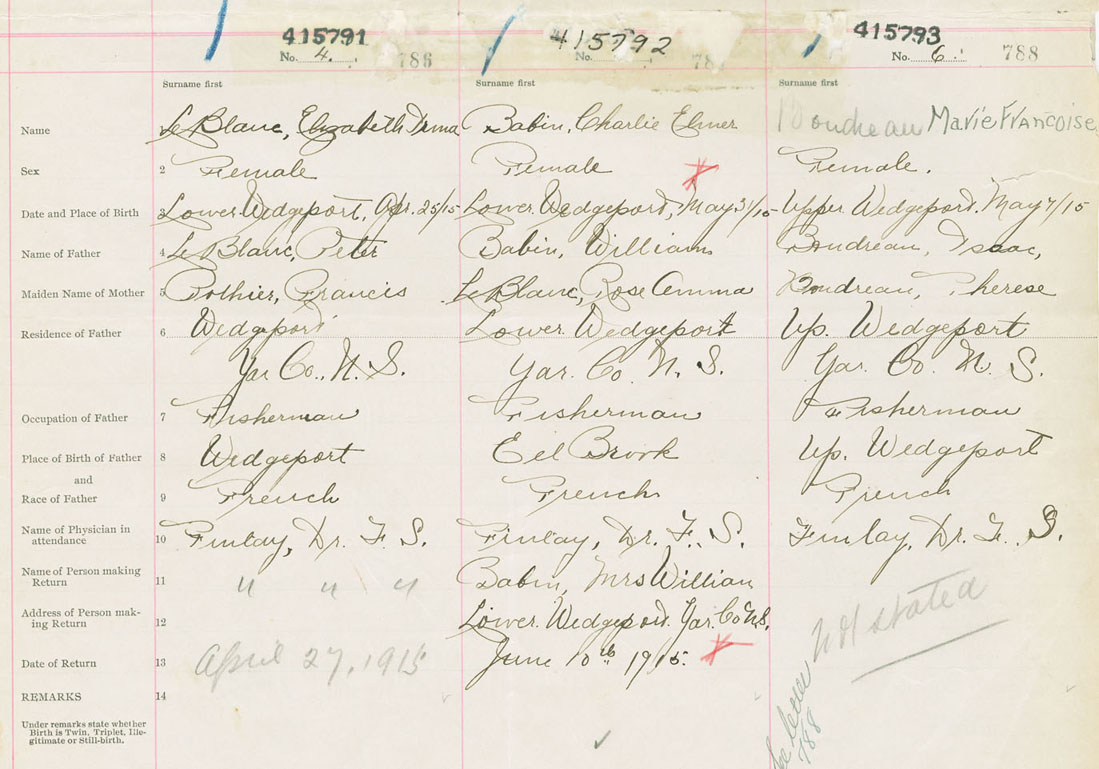 415791 415792 415793
No. 4. 786 No. No. 6. 788
Surname first Surname first Surname first
Name Le Blanc, Elizabeth Irma Babin, Charlie Elmer Boudreau Marie Francoise
Sex 2 Female Female Female.
Date and Place of Birth 3 Lower Wedgeport, Apr. 25/15 Lower Wedgeport, May 31/15 Upper Wedgeport. May 7/15
Name of Father 4 Le Blanc, Peter Babin, William Boudreau, Isaac,
Maiden Name of Mother 5 Pothier, Francis Le Blanc, Rose Emma Boudreau, Therese
Residence of Father 6 Wedgeport Lower Wedgeport Up. Wedgeport
Yar Co., N. S. Yar. Co. N. S. Yar. Co. N. S.
Occupation of Father 7 Fisherman Fisherman Fisherman
Place of Birth of Father 8 Wedgeport Eel Brook Up. Wedgeport
and
Race of Father 9 French French French
Name of Physician in
attendance 10 Finlay, Dr. F. S. Finlay, Dr. F. S. Finlay, Dr. F. S.
Name of Person making
Return 11 " " " Babin, Mrs William
Address of Person mak-
ing Return 12 Lower Wedgeport. Yar. Co N.S. Not stated
Date of Return 13 April 27, 1915 June 10th 1915.
REMARKS 14
Under remarks state whether
Birth is Twin, Triplet, Ille-
gitimate or Still-birth.
See letter
788